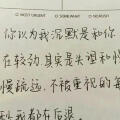 MOST URGENT SOMEWHAT NONRUSH
你以为我沉默是和你
在较劲,其实是失望和慢
慢疏远,不被重视的每
我都在后退。